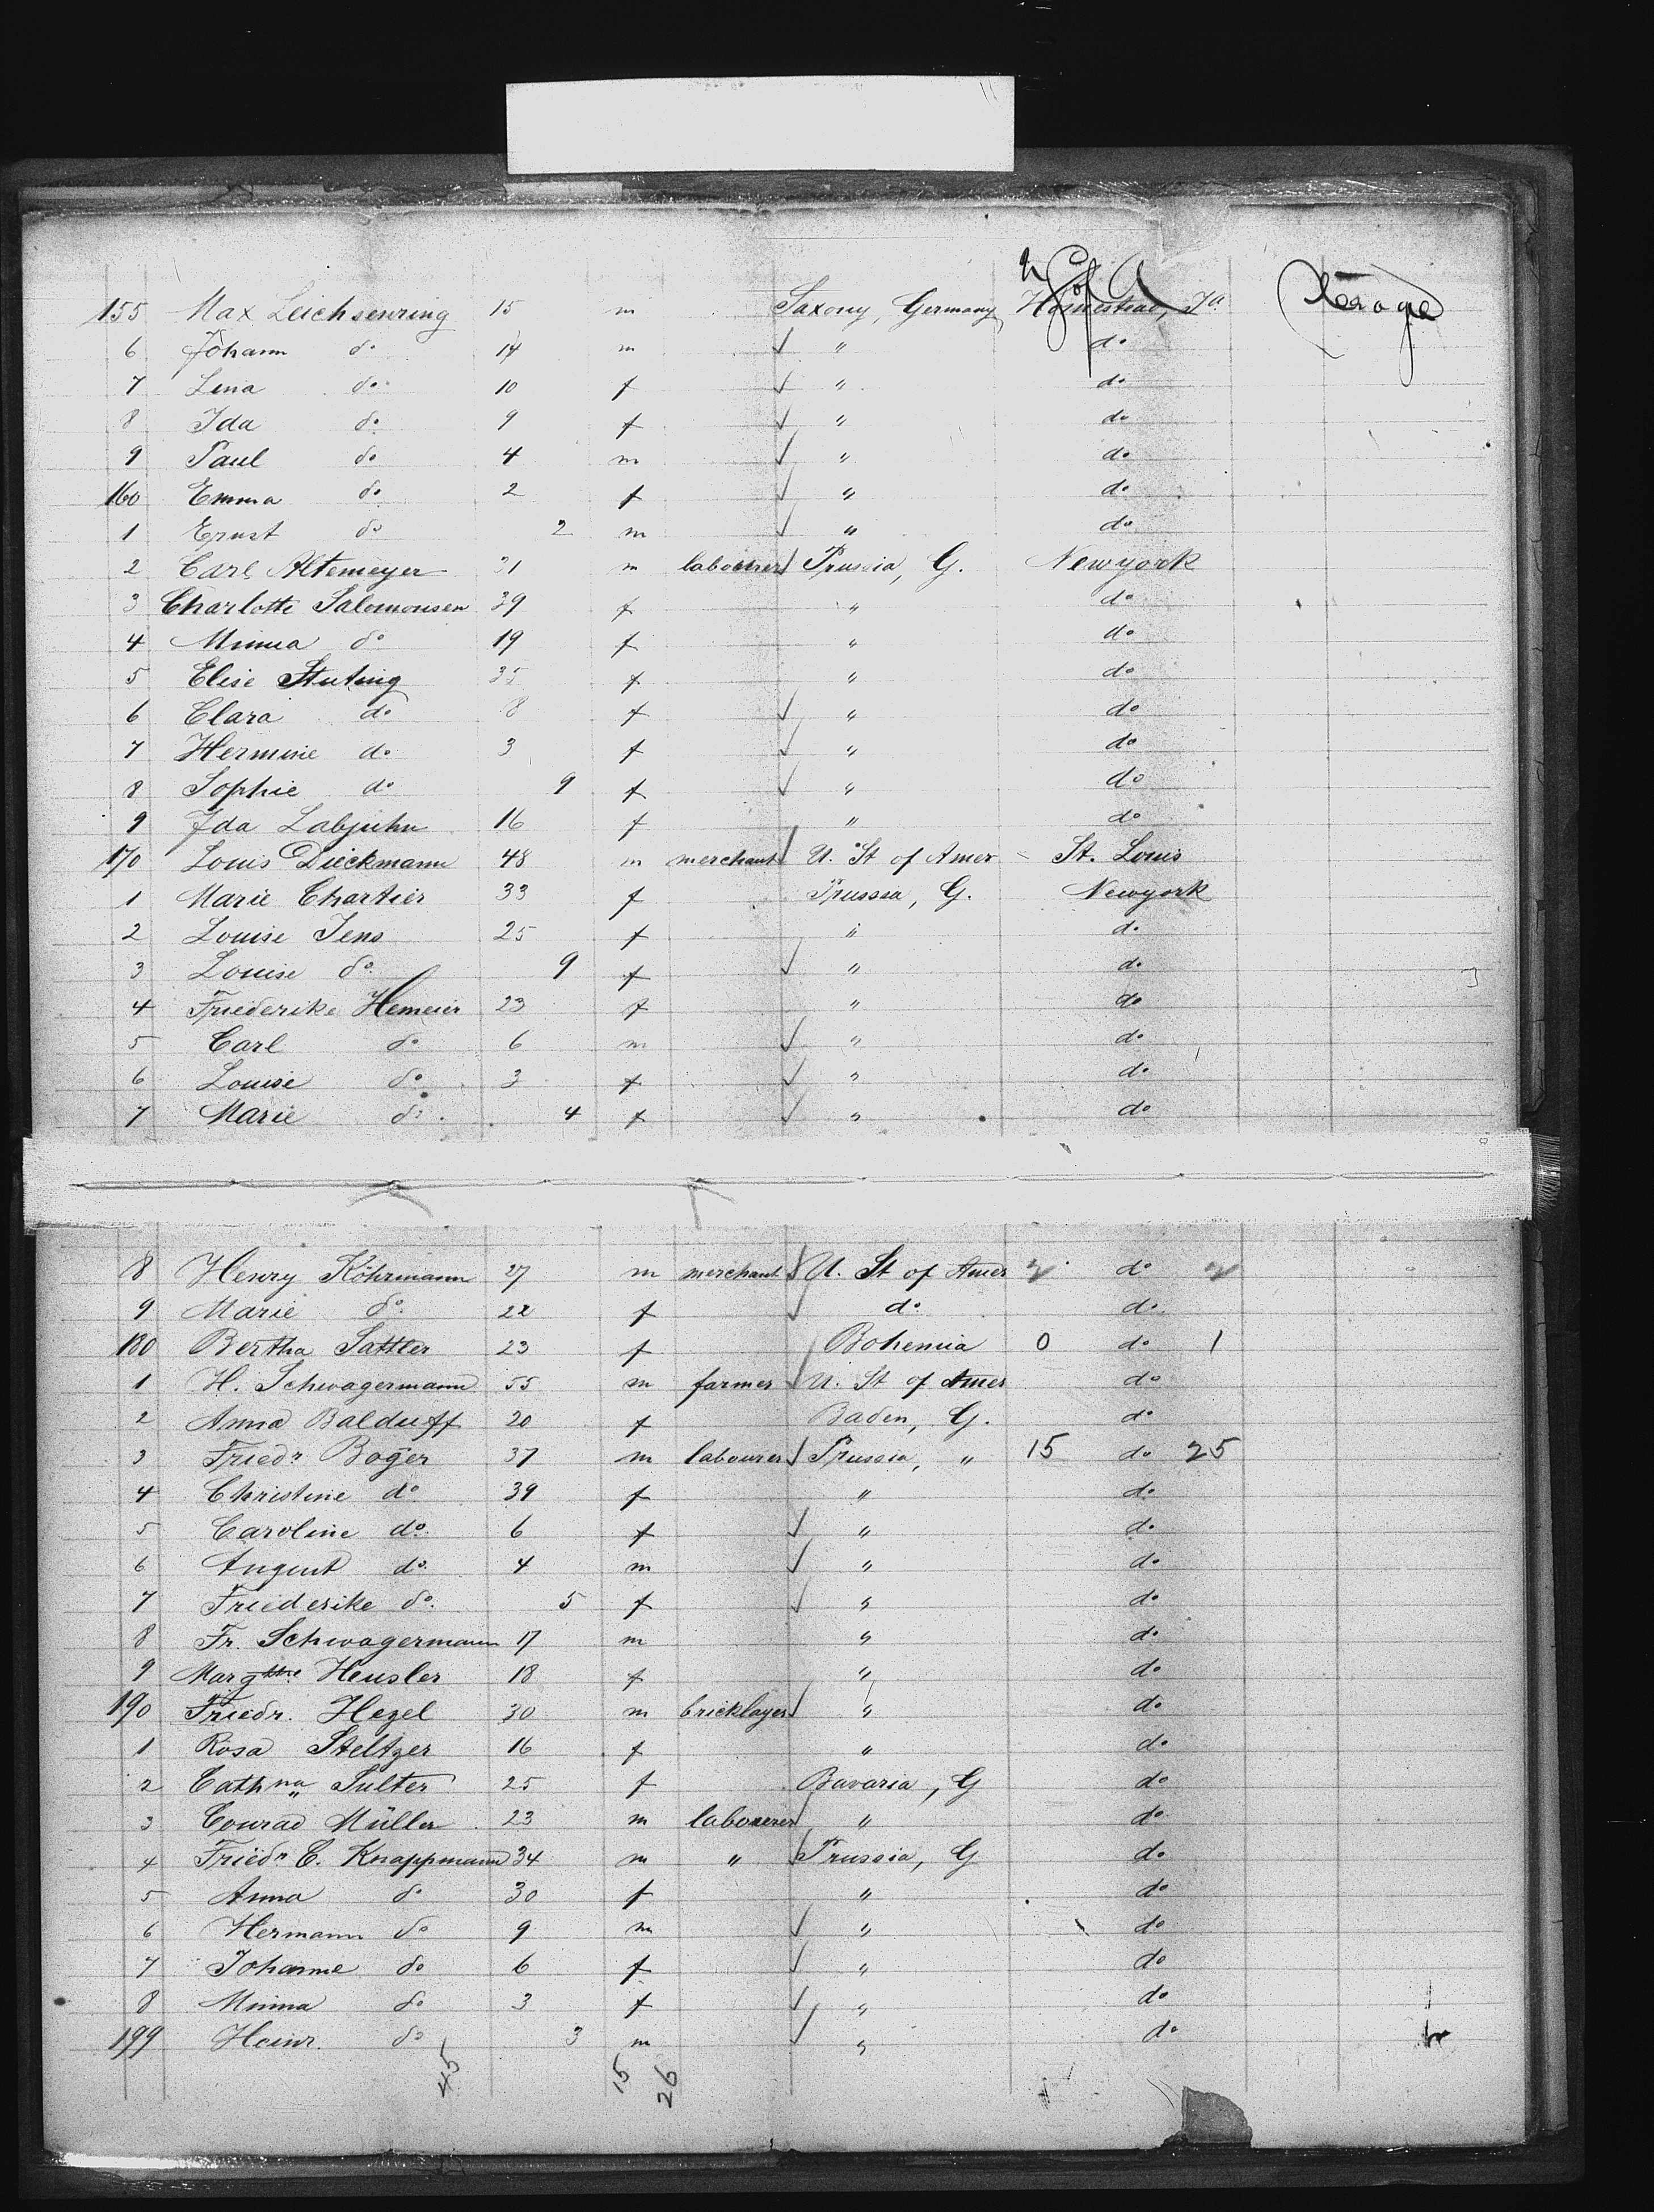 155 Max Leichsenring 15 m Saxony, Germany, Homestead, Ja.
6 Johann do 14 m " do
7 Lina do 10 f " do
8 Ida do 9 f " do
9 Paul do 4 m " do
160 Emma do 2 f " do
1 Ernst do 2 m " do
2 Carl Altemeyer 31 m labourer Prussia, G. Newyork
3 Charlotte Salomonsen 39 f " do
4 Minna do 19 f " do
5 Elise Stuting 35 f " do
6 Clara do 8 f " do
7 Hermine do 3 f " do
8 Sophie do 9 f " do
9 Ida Labjuhn 16 f " do
170 Louis Dieckmann 48 m merchant U. St of Amer - St. Louis
1 Marie Chartier 33 f Prussia, G. Newyork
2 Louise Jens 25 f " do
3 Louise do 9 f " do
4 Friederike Hemeier 23 f " do
5 Carl do 6 m " do
6 Louise do 3 f " do
7 Marie do 4 f " do
8 Henry Köhrmann 27 m merchant U. St of Amer do
9 Marie do 22 f do do
180 Bertha Sattler 23 f Bohemia 0 do 1
1 H. Schwagermann 55 m farmer U. St of Amer do
2 Anna Balduff 20 f Baden, G. do
3 Friedr Boger 37 m labourer Prussia, " 15 do 25
4 Christine do 39 f " do
5 Caroline do 6 f " do
6 August do 4 m " do
7 Friederike do 5 f " do
8 Fr. Schwagermann 17 m " do
9 Heusler 18 f " do
190 Friedr. Hezel 30 m bricklayer " do
1 Rosa Steltzer 16 f " do
2 Cathna Sulter 25 f Bavaria, G do
3 Conrad Müller 23 m labourer " do
4 Friedr C. Knappmann 34 m " Prussia, G do
5 Anna do 30 f " do
6 Hermann do 9 m " do
7 Johanne do 6 f " do
8 Minna do 3 f " do
199 Heinr. do 3 m " do
45 15 26